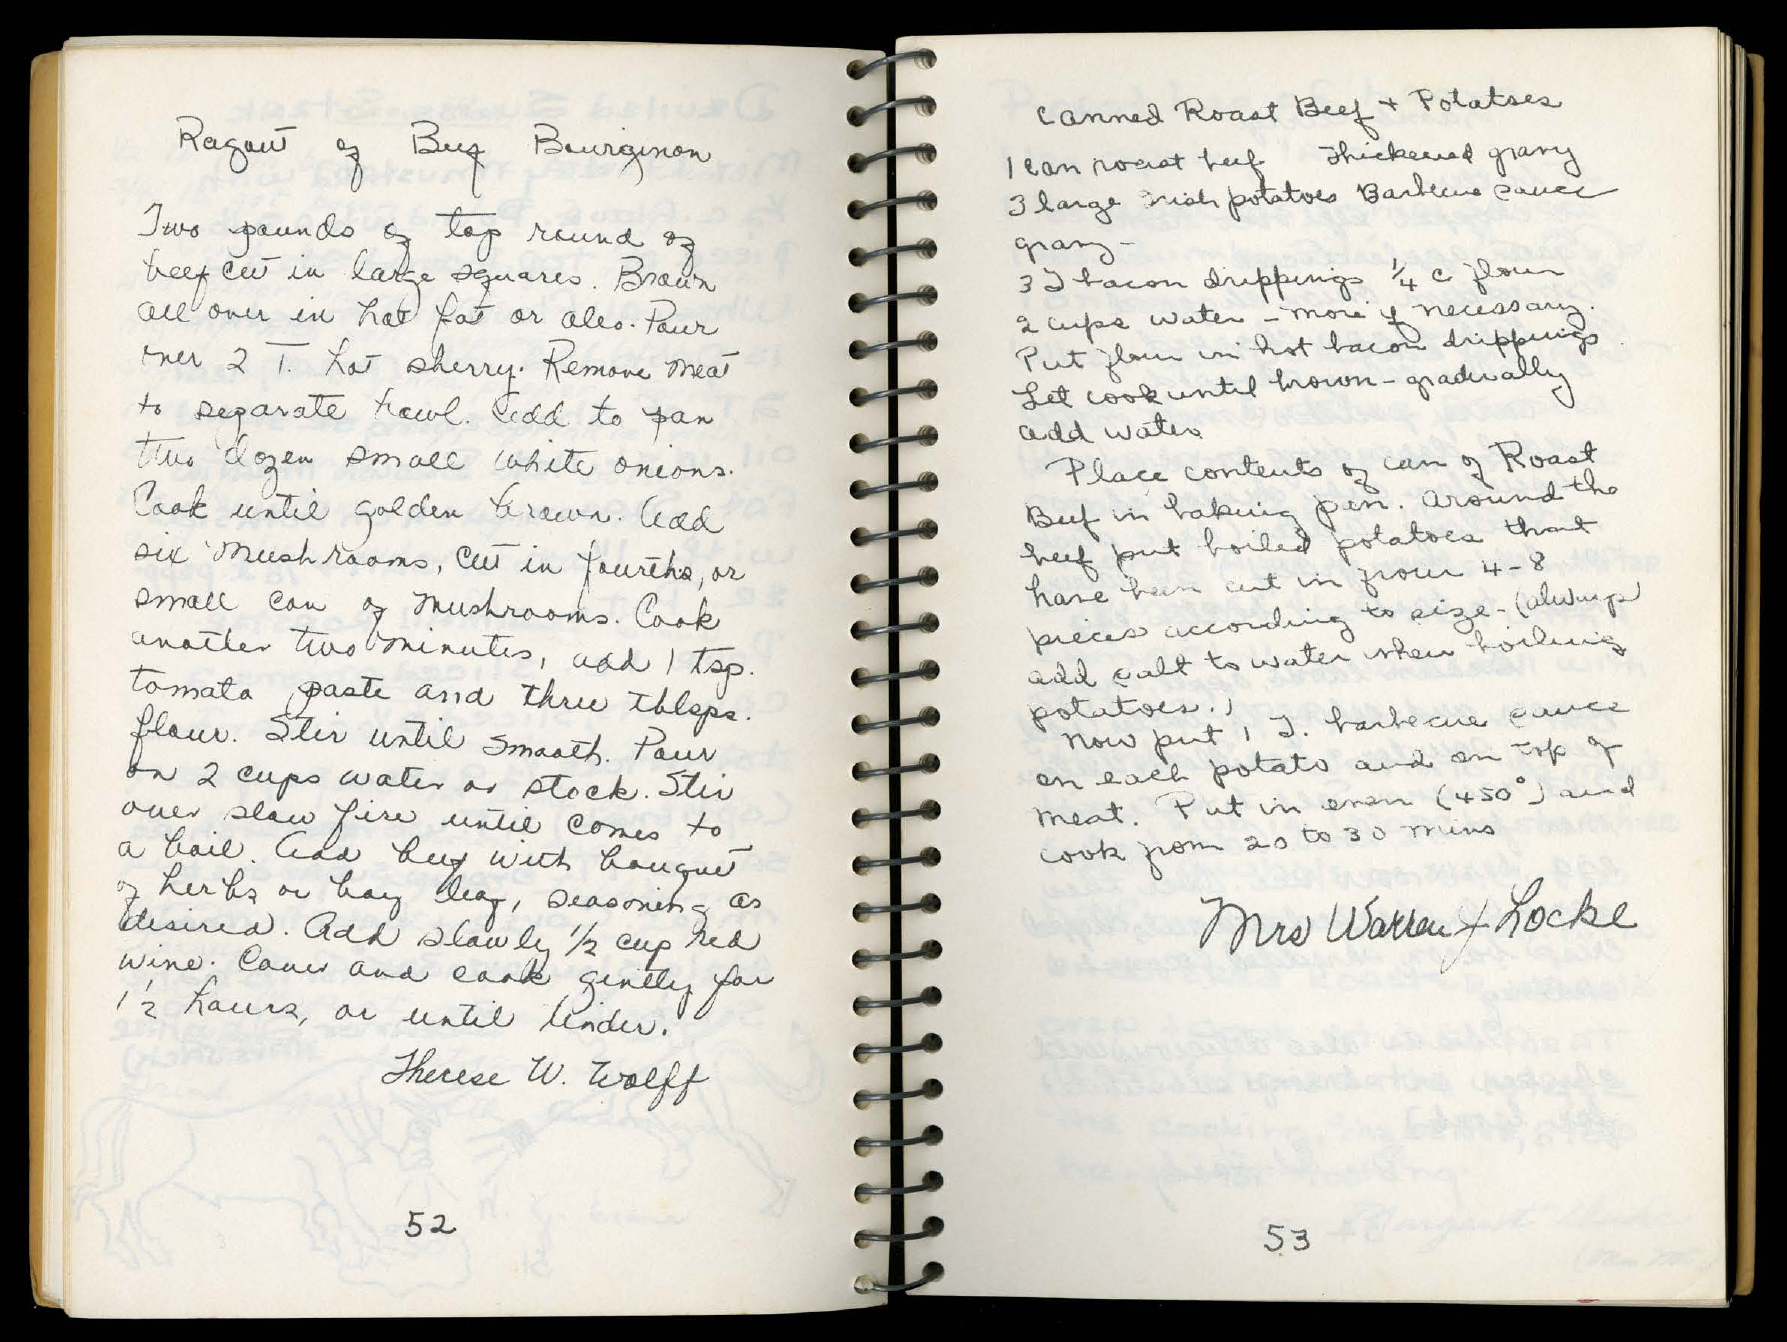 Ragout of Beef Bourginon
Two pounds of top round of
beef cut in large squares. Brown
all over in hot fat or oleo. Pour
over 2 T. hot sherry. Remove meat
to separate bowl. Add to pan
two dozen small white onions.
Cook until golden brown. Add
six mushrooms, cut in fourths, or
small can of mushrooms. Cook
another two minutes, add 1 tsp.
tomato paste and three tblsps.
flour. Stir until smooth. Pour
on 2 cups water or stock. Stir
over slow fire until comes to
a boil. Add beef with bouquet
of herbs or bay leaf, seasoning as
desired. Add slowly 1/2 cup red
wine. Cover and cook gently for
1 1/2 hours, or until tender.
Therese W. Wolff
52
Canned Roast Beef + Potatoes
1 can roast beef Thickened gravy
3 large Irish potatoes Barbecue sauce
gravy -
3 T bacon drippings 1/4 c flour
2 cups water - more if necessary.
Put flour in hot bacon drippings
Let cook until brown - gradually
add water
Place contents of can of Roast
Beef in baking pan. Around the
beef put boiled potatoes that
have been cut in from 4-8
pieces according to size - (always
add salt to water when boiling
potatoes.)
Now put 1 T. barbecue sauce
on each potato and on top of
meat. Put in oven (450°) and
cook from 20 to 30 mins
Mrs Warren J Locke
53